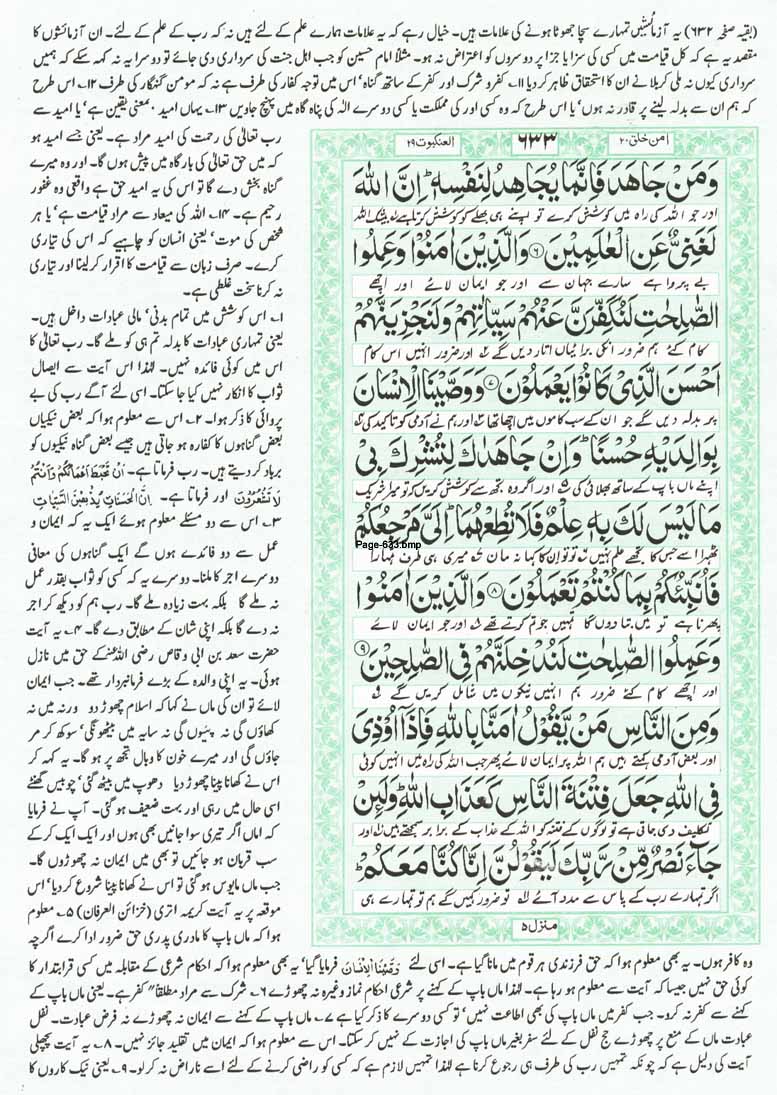 (بقیہ صفحہ ۶۳۲) یہ آزمائشیں تمہارے سچا جھوٹا ہونے کی علامات ہیں۔ خیال رہے کہ یہ علامات ہمارے علم کے لئے ہیں نہ کہ رب کے علم کے لئے۔ ان آزمائشوں کا
مقصد یہ ہے کہ کل قیامت میں کسی کی سزا یا جزا پر دوسروں کو اعتراض نہ ہو۔ مثلاً امام حسین کو جب اہل جنت کی سرداری دی جائے تو دوسرا یہ نہ کہہ سکے کہ ہمیں
سرداری کیوں نہ ملی کربلا نے ان کا استحقاق ظاہر کر دیا ۱۱۔ کفر و شرک اور کفر کے ساتھ گناہ' اس میں توجہ کفار کی طرف ہے نہ کہ مومن گنہگار کی طرف ۱۲۔ اس طرح
کہ ہم ان سے بدلہ لینے پر قادر نہ ہوں' یا اس طرح کہ وہ کسی اور کی مملکت یا کسی دوسرے الٰہ کی پناہ گاہ میں پہنچ جاویں ۱۳۔ یہاں امید بمعنی یقین ہے' یا امید سے
رب تعالیٰ کی رحمت کی امید مراد ہے۔ یعنی جسے امید ہو
کہ میں حق تعالیٰ کی بارگاہ میں پیش ہوں گا۔ اور وہ میرے
گناہ بخش دے گا تو اس کی یہ امید حق ہے واقعی وہ غفور
رحیم ہے۔ ۱۴۔ اللہ کی میعاد سے مراد قیامت ہے' یا ہر
شخص کی موت' یعنی انسان کو چاہیے کہ اس کی تیاری
کرے۔ صرف زبان سے قیامت کا اقرار کر لینا اور تیاری
نہ کرنا سخت غلطی ہے۔
۱۔ اس کوشش میں تمام بدنی' مالی عبادات داخل ہیں۔
یعنی تمہاری عبادات کا بدلہ تم ہی کو ملے گا۔ رب تعالیٰ کا
اس میں کوئی فائدہ نہیں۔ لہٰذا اس آیت سے ایصال
ثواب کا انکار نہیں کیا جا سکتا۔ اسی لئے آگے رب کی بے
پروائی کا ذکر ہوا۔ ۲۔ اس سے معلوم ہوا کہ بعض نیکیاں
بعض گناہوں کا کفارہ ہو جاتی ہیں جیسے بعض گناہ نیکیوں کو
برباد کر دیتے ہیں۔ رب فرماتا ہے۔ اَنْ تَحْبَطَ اَعْمَالُكُمْ وَاَنْتُمْ
لَا تَشْعُرُوْنَ اور فرماتا ہے۔ اِنَّ الْحَسَنَاتِ يُذْهِبْنَ السَّيِّاٰتِ
۳۔ اس سے دو مسئلے معلوم ہوئے ایک یہ کہ ایمان و
عمل سے دو فائدے ہوں گے ایک گناہوں کی معافی
دوسرے اجر کا ملنا۔ دوسرے یہ کہ کسی کو ثواب بقدر عمل
نہ ملے گا بلکہ بہت زیادہ ملے گا۔ رب ہم کو دیکھ کر اجر
نہ دے گا بلکہ اپنی شان کے مطابق دے گا۔ ۴۔ یہ آیت
حضرت سعد بن ابی وقاص رضی اللہ عنہ کے حق میں نازل
ہوئی۔ یہ اپنی والدہ کے بڑے فرمانبردار تھے۔ جب ایمان
لائے تو ان کی ماں نے کہا کہ اسلام چھوڑ دو ورنہ میں نہ
کھاؤں گی نہ پیوں گی نہ سایہ میں بیٹھونگی' سوکھ کر مر
جاؤں گی اور میرے خون کا وبال تجھ پر ہو گا۔ یہ کہہ کر
اس نے کھانا پینا چھوڑ دیا دھوپ میں بیٹھ گئی' چوبیس گھنٹے
اسی حال میں رہی اور بہت ضعیف ہو گئی۔ آپ نے فرمایا
کہ اماں اگر تیری سو جانیں بھی ہوں اور ایک ایک کر کے
سب قربان ہو جائیں تو بھی میں ایمان نہ چھوڑوں گا۔
جب ماں مایوس ہو گئی تو اس نے کھانا پینا شروع کر دیا' اس
موقعہ پر یہ آیت کریمہ اتری (خزائن العرفان) ۵۔ معلوم
ہوا کہ ماں باپ کا مادری پدری حق ضرور ادا کرے اگرچہ
امن خلق ۲۰ ۶۳۳ العنکبوت ۲۹
وَمَنْ جَاهَدَ فَاِنَّمَا يُجَاهِدُ لِنَفْسِهٖ ؕ اِنَّ اللّٰهَ
اور جو اللہ کی راہ میں کوشش کرے تو اپنے ہی بھلے کو کوشش کرتا ہے ۱ بیشک اللہ
لَغَنِيٌّ عَنِ الْعٰلَمِيْنَ ۶ وَالَّذِيْنَ اٰمَنُوْا وَعَمِلُوا
بے پرواہ ہے سارے جہان سے اور جو ایمان لائے اور اچھے
الصّٰلِحٰتِ لَنُكَفِّرَنَّ عَنْهُمْ سَيِّاٰتِهِمْ وَلَنَجْزِيَنَّهُمْ
کام کئے ہم ضرور انکی برائیاں اتار دیں گے ۲ اور ضرور انہیں اس کام
اَحْسَنَ الَّذِيْ كَانُوْا يَعْمَلُوْنَ ۷ وَوَصَّيْنَا الْاِنْسَانَ
پر بدلہ دیں گے جو ان کے سب کاموں میں اچھا تھا ۳ اور ہم نے آدمی کو تاکید کی ۴
بِوَالِدَيْهِ حُسْنًا ؕ وَاِنْ جَاهَدٰكَ لِتُشْرِكَ بِيْ
اپنے ماں باپ کے ساتھ بھلائی کی ۵ اور اگر وہ تجھ سے کوشش کریں کہ تو میرا شریک
مَا لَيْسَ لَكَ بِهٖ عِلْمٌ فَلَا تُطِعْهُمَا ؕ اِلَيَّ مَرْجِعُكُمْ
Page-633.bmp
ٹھہرائے جس کا تجھے علم نہیں ۶ تو تو ان کا کہا نہ مان ۷ میری ہی طرف تمہارا
فَاُنَبِّئُكُمْ بِمَا كُنْتُمْ تَعْمَلُوْنَ ۸ وَالَّذِيْنَ اٰمَنُوْا
پھرنا ہے تو میں بتا دوں گا تمہیں جو تم کرتے تھے ۸ اور جو ایمان لائے
وَعَمِلُوا الصّٰلِحٰتِ لَنُدْخِلَنَّهُمْ فِي الصّٰلِحِيْنَ ۹
اور اچھے کام کئے ضرور ہم انہیں نیکوں میں شامل کریں گے ۹
وَمِنَ النَّاسِ مَنْ يَّقُوْلُ اٰمَنَّا بِاللّٰهِ فَاِذَاۤ اُوْذِيَ
اور بعض آدمی کہتے ہیں ہم اللہ پر ایمان لائے پھر جب اللہ کی راہ میں انہیں کوئی
فِي اللّٰهِ جَعَلَ فِتْنَةَ النَّاسِ كَعَذَابِ اللّٰهِ ؕ وَلَئِنْ
تکلیف دی جاتی ہے تو لوگوں کے فتنہ کو اللہ کے عذاب کے برابر سمجھتے ہیں ۱۰ اور
جَآءَ نَصْرٌ مِّنْ رَّبِّكَ لَيَقُوْلُنَّ اِنَّا كُنَّا مَعَكُمْ ؕ
اگر تمہارے رب کے پاس سے مدد آئے ۱۱ تو ضرور کہیں گے ہم تو تمہارے ہی
منزل ۵
وہ کافر ہوں۔ یہ بھی معلوم ہوا کہ حق فرزندی ہر قوم میں مانا گیا ہے۔ اسی لئے وَصَّيْنَا الْاِنْسَانَ فرمایا گیا' یہ بھی معلوم ہوا کہ احکام شرعی کے مقابلہ میں کسی قرابتدار کا
کوئی حق نہیں جیسا کہ آیت سے معلوم ہو رہا ہے۔ لہٰذا ماں باپ کے کہنے پر شرعی احکام نماز وغیرہ نہ چھوڑے ۶۔ شرک سے مراد مطلقاً کفر ہے۔ یعنی ماں باپ کے
کہنے سے کفر نہ کرو۔ جب کفر میں ماں باپ کی بھی اطاعت نہیں' تو کسی دوسرے کا ذکر کیا ہے ۷۔ ماں باپ کے کہنے سے ایمان نہ چھوڑے نہ فرض عبادت۔ نفل
عبادت ماں کے منع پر چھوڑے حج نفل کے لئے سفر بغیر ماں باپ کی اجازت کے نہیں کر سکتا۔ اس سے معلوم ہوا کہ ایمان میں تقلید جائز نہیں۔ ۸۔ یہ آیت پچھلی
آیت کی دلیل ہے کہ چونکہ تمہیں رب کی طرف ہی رجوع کرنا ہے لہٰذا تمہیں لازم ہے کہ کسی کو راضی کرنے کے لئے اسے ناراض نہ کر لو۔ ۹۔ یعنی نیک کاروں کا